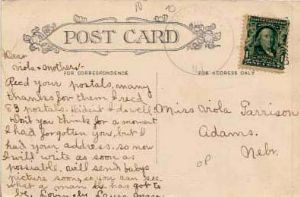 POST CARD
FOR CORRESPONDENCE
FOR ADDRESS ONLY
Dear
Viola & Mother:-
Recd your postals, many
thanks for them I recd
83 postals.
Don't you think for a moment
I had forgotten you, but I
had your address. so now
I will write as soon as
possiable. will send baby's
picture soon, so you can see
what a man he has got to
be.
Miss Viola Parrison
Adams.
Nebr.